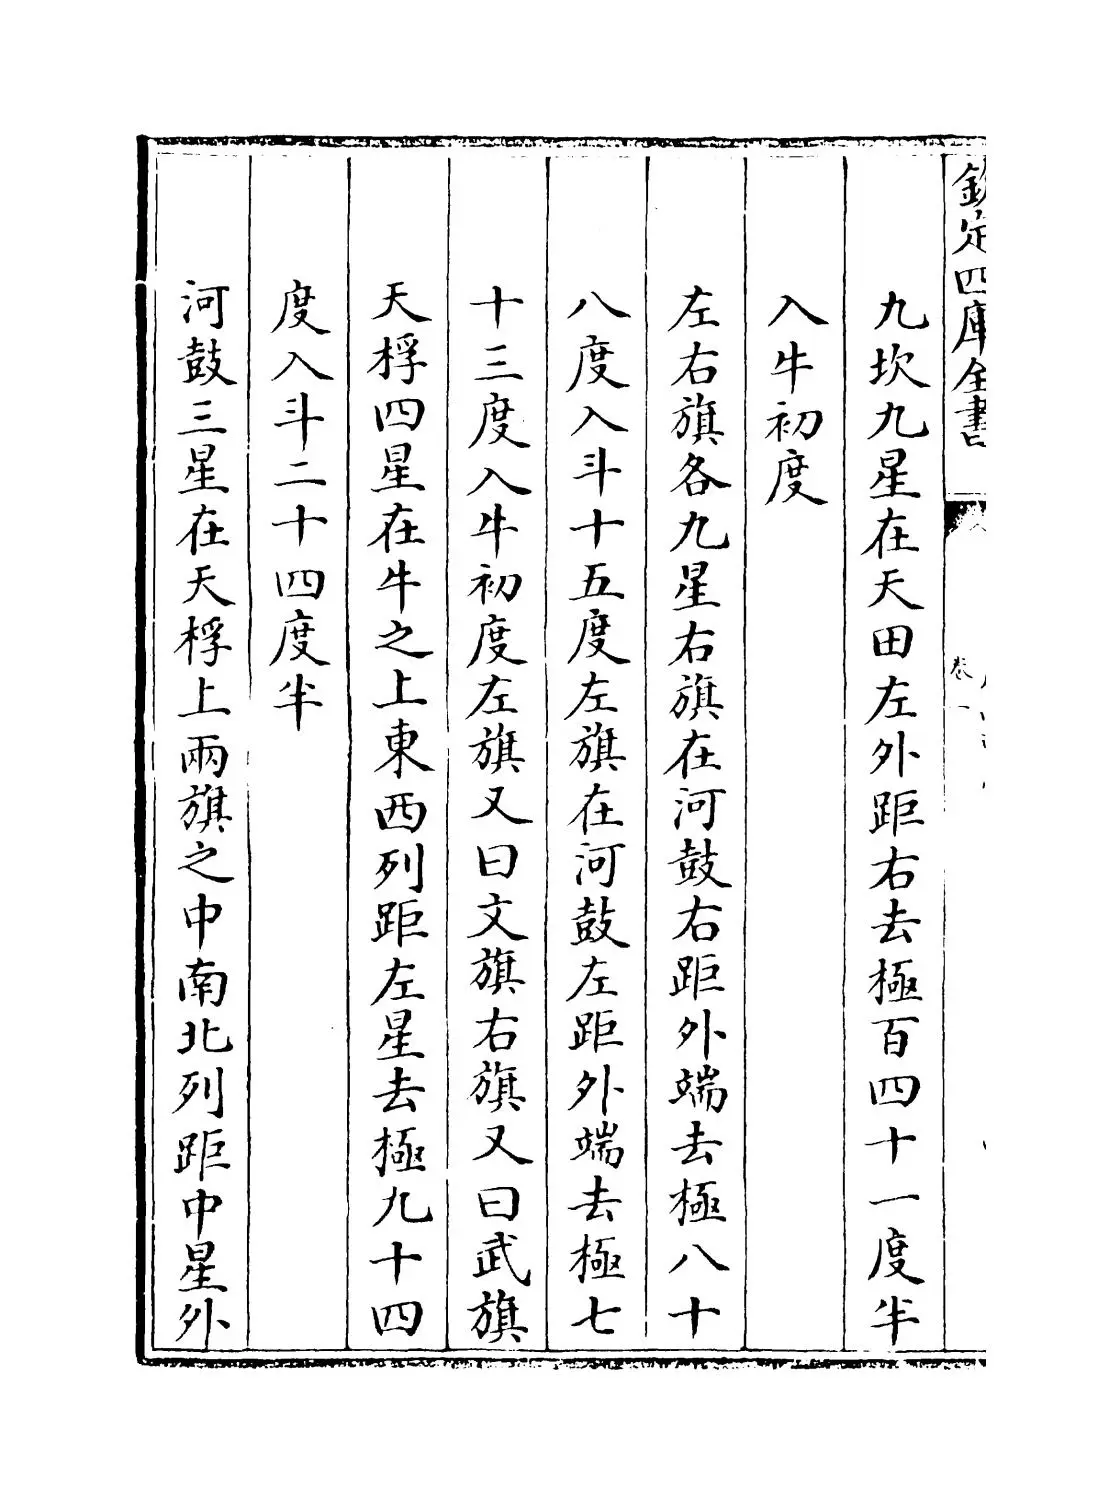 欽定四庫全書
卷一
九坎九星在天田左外距右去極百四十一度半
入牛初度
左右旗各九星右旗在河鼓右距外端去極八十
八度入斗十五度左旗在河鼓左距外端去極七
十三度入牛初度左旗又曰文旗右旗又曰武旗
天桴四星在牛之上東西列距左星去極九十四
度入斗二十四度半
河鼓三星在天桴上兩旗之中南北列距中星外